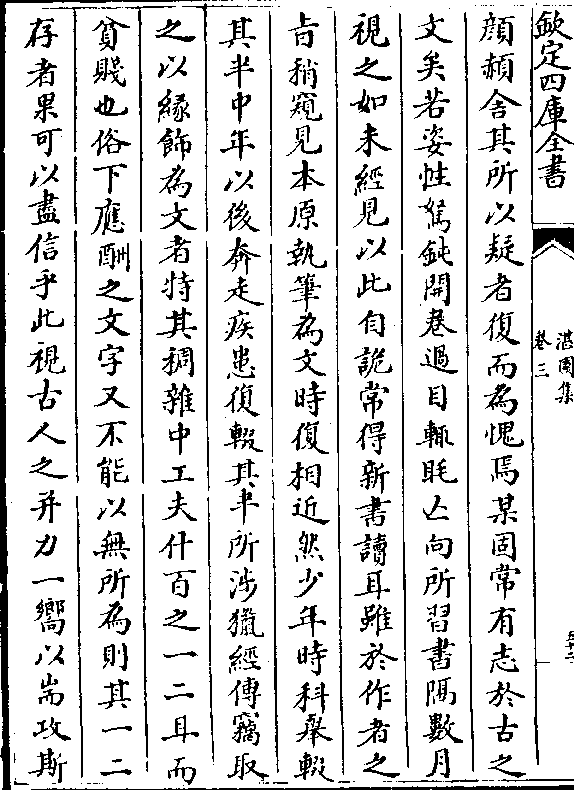 欽定四庫全書
湛園集
卷三
顔頳舍其所以疑者復而為愧焉某固常有志於古之
文矣若姿性駑鈍開巻過目輒眊亡向所習書隔數月
視之如未經見以此自詭常得新書讀耳雖於作者之
㫖稍窺見本原執筆為文時復相近然少年時科舉輟
其半中年以後奔走疾患復輟其半所涉獵經傳竊取
之以緣飾為文者特其稠雜中工夫什百之一二耳而
貧賤也俗下應酬之文字又不能以無所為則其一二
存者果可以盡信乎此視古人之并力一嚮以耑攻斯